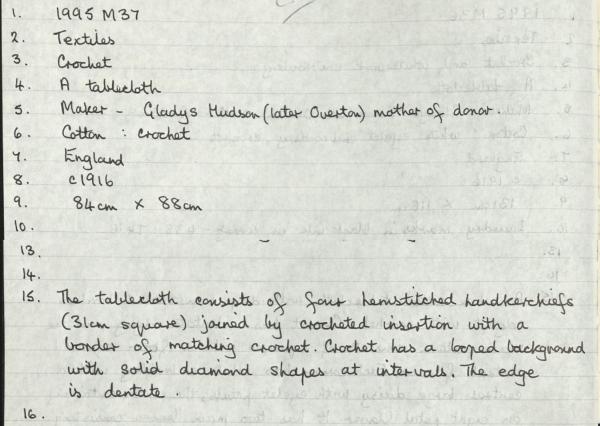 1. 1995 M37
2. Textiles
3. Crochet
4. A tablecloth
5. Maker - Gladys Hudson (later Overton) mother of donor.
6. Cotton : crochet
7. England
8. c1916
9. 84cm x 88cm
10.
13.
14.
15. The tablecloth consists of four hemstitched handkerchiefs
(31cm square) joined by crocheted insertion with a
border of matching crochet. Crochet has a looped background
with solid diamond shapes at intervals. The edge
is dentate.
16.